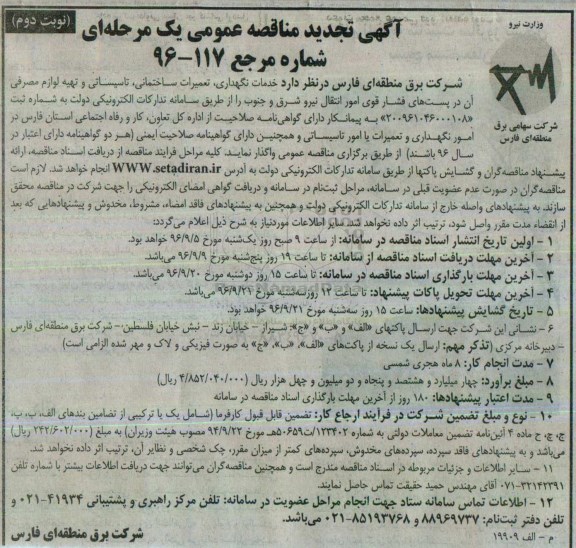 (نوبت دوم)
وزارت نیرو
آگهی تجدید مناقصه عمومی یک مرحله‌ای
شماره مرجع ۱۱۷-۹۶
شرکت سهامی برق
منطقه‌ای فارس
شرکت برق منطقه‌ای فارس درنظر دارد خدمات نگهداری، تعمیرات ساختمانی، تاسیساتی و تهیه لوازم مصرفی
آن در پست‌های فشار قوی امور انتقال نیرو شرق و جنوب را از طریق سامانه تدارکات الکترونیکی دولت به شماره ثبت
«۲۰۰۹۶۱۰۴۶۰۰۰۱۰۸» به پیمانکار دارای گواهی‌نامه صلاحیت از اداره کل تعاون، کار و رفاه اجتماعی استان فارس در
امور نگهداری و تعمیرات یا امور تاسیساتی و همچنین دارای گواهینامه صلاحیت ایمنی (هر دو گواهینامه دارای اعتبار در
سال ۹۶ باشند) از طریق برگزاری مناقصه عمومی واگذار نماید. کلیه مراحل فرآیند مناقصه از دریافت اسناد مناقصه، ارائه
پیشنهاد مناقصه‌گران و گشایش پاکتها از طریق سامانه تدارکات الکترونیکی دولت به آدرس WWW.setadiran.ir انجام خواهد شد. لازم است
مناقصه‌گران در صورت عدم عضویت قبلی در سامانه، مراحل ثبت‌نام در سامانه و دریافت گواهی امضای الکترونیکی را جهت شرکت در مناقصه محقق
سازند. به پیشنهادهای واصله خارج از سامانه تدارکات الکترونیکی دولت و همچنین به پیشنهادهای فاقد امضاء، مشروط، مخدوش و پیشنهادهایی که بعد
از انقضاء مدت مقرر واصل شود، ترتیب اثر داده نخواهد شد. سایر اطلاعات موردنیاز به شرح ذیل اعلام می‌گردد:
۱ - اولین تاریخ انتشار اسناد مناقصه در سامانه: از ساعت ۹ صبح روز یک‌شنبه مورخ ۹۶/۹/۵ خواهد بود.
۲ - آخرین مهلت دریافت اسناد مناقصه از سامانه: تا ساعت ۱۹ روز پنج‌شنبه مورخ ۹۶/۹/۹ می‌باشد.
۳ - آخرین مهلت بارگذاری اسناد مناقصه در سامانه: تا ساعت ۱۵ روز دوشنبه مورخ ۹۶/۹/۲۰ می‌باشد.
۴ - آخرین مهلت تحویل پاکات پیشنهاد: تا ساعت ۱۲ روز سه‌شنبه مورخ ۹۶/۹/۲۱ می‌باشد.
۵ - تاریخ گشایش پیشنهادها: ساعت ۱۵ روز سه‌شنبه مورخ ۹۶/۹/۲۱ خواهد بود.
۶ - نشانی این شرکت جهت ارسال پاکتهای «الف» و «ب» و «ج»: شیراز - خیابان زند - نبش خیابان فلسطین- شرکت برق منطقه‌ای فارس
- دبیرخانه مرکزی (تذکر مهم: ارسال یک نسخه از پاکت‌های «الف»، «ب»، «ج» به صورت فیزیکی و لاک و مهر شده الزامی است)
۷ - مدت انجام کار: ۸ ماه هجری شمسی
۸ - مبلغ برآورد: چهار میلیارد و هشتصد و پنجاه و دو میلیون و چهل هزار ریال (۴/۸۵۲/۰۴۰/۰۰۰ ریال)
۹ - مدت اعتبار پیشنهادها: ۱۸۰ روز از آخرین مهلت بارگذاری اسناد مناقصه در سامانه
۱۰ - نوع و مبلغ تضمین شرکت در فرآیند ارجاع کار: تضمین قابل قبول کارفرما (شامل یک یا ترکیبی از تضامین بندهای الف، ب، پ،
ج، چ، ح ماده ۴ آئین‌نامه تضمین معاملات دولتی به شماره ۱۲۳۴۰۲/ت۵۰۶۵۹هـ مورخ ۹۴/۹/۲۲ مصوب هیئت وزیران) به مبلغ (۲۴۲/۶۰۲/۰۰۰ ریال)
می‌باشد و به پیشنهادهای فاقد سپرده، سپرده‌های مخدوش، سپرده‌های کمتر از میزان مقرر، چک شخصی و نظایر آن، ترتیب اثر داده نخواهد شد.
۱۱ - سایر اطلاعات و جزئیات مربوطه در اسناد مناقصه مندرج است و همچنین مناقصه‌گران می‌توانند جهت دریافت اطلاعات بیشتر با شماره تلفن
۰۷۱-۳۲۱۴۲۳۹۱ آقای مهندس حمید حقیقت تماس حاصل نمایند.
۱۲ - اطلاعات تماس سامانه ستاد جهت انجام مراحل عضویت در سامانه: تلفن مرکز راهبری و پشتیبانی ۴۱۹۳۴-۰۲۱
و تلفن دفتر ثبت‌نام: ۸۸۹۶۹۷۳۷ و ۸۵۱۹۳۷۶۸-۰۲۱ می‌باشد.
م - الف ۱۹۹۰۹
شرکت برق منطقه‌ای فارس